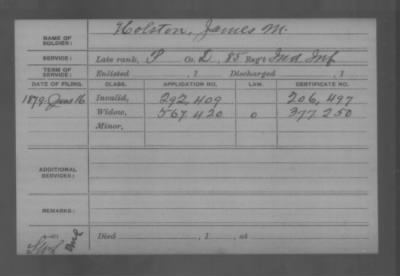 NAME OF SOLDIER: Holston, James M.
SERVICE: Late rank, P Co. D, 85 Reg't Ind. Inf
TERM OF SERVICE: Enlisted , 1 Discharged , 1
DATE OF FILING. CLASS. APPLICATION NO. LAW. CERTIFICATE NO.
1879. June 16 Invalid, 292,409 206,497
Widow, 567,420 0 377250
Minor,
ADDITIONAL SERVICES:
REMARKS:
Died , 1 , at